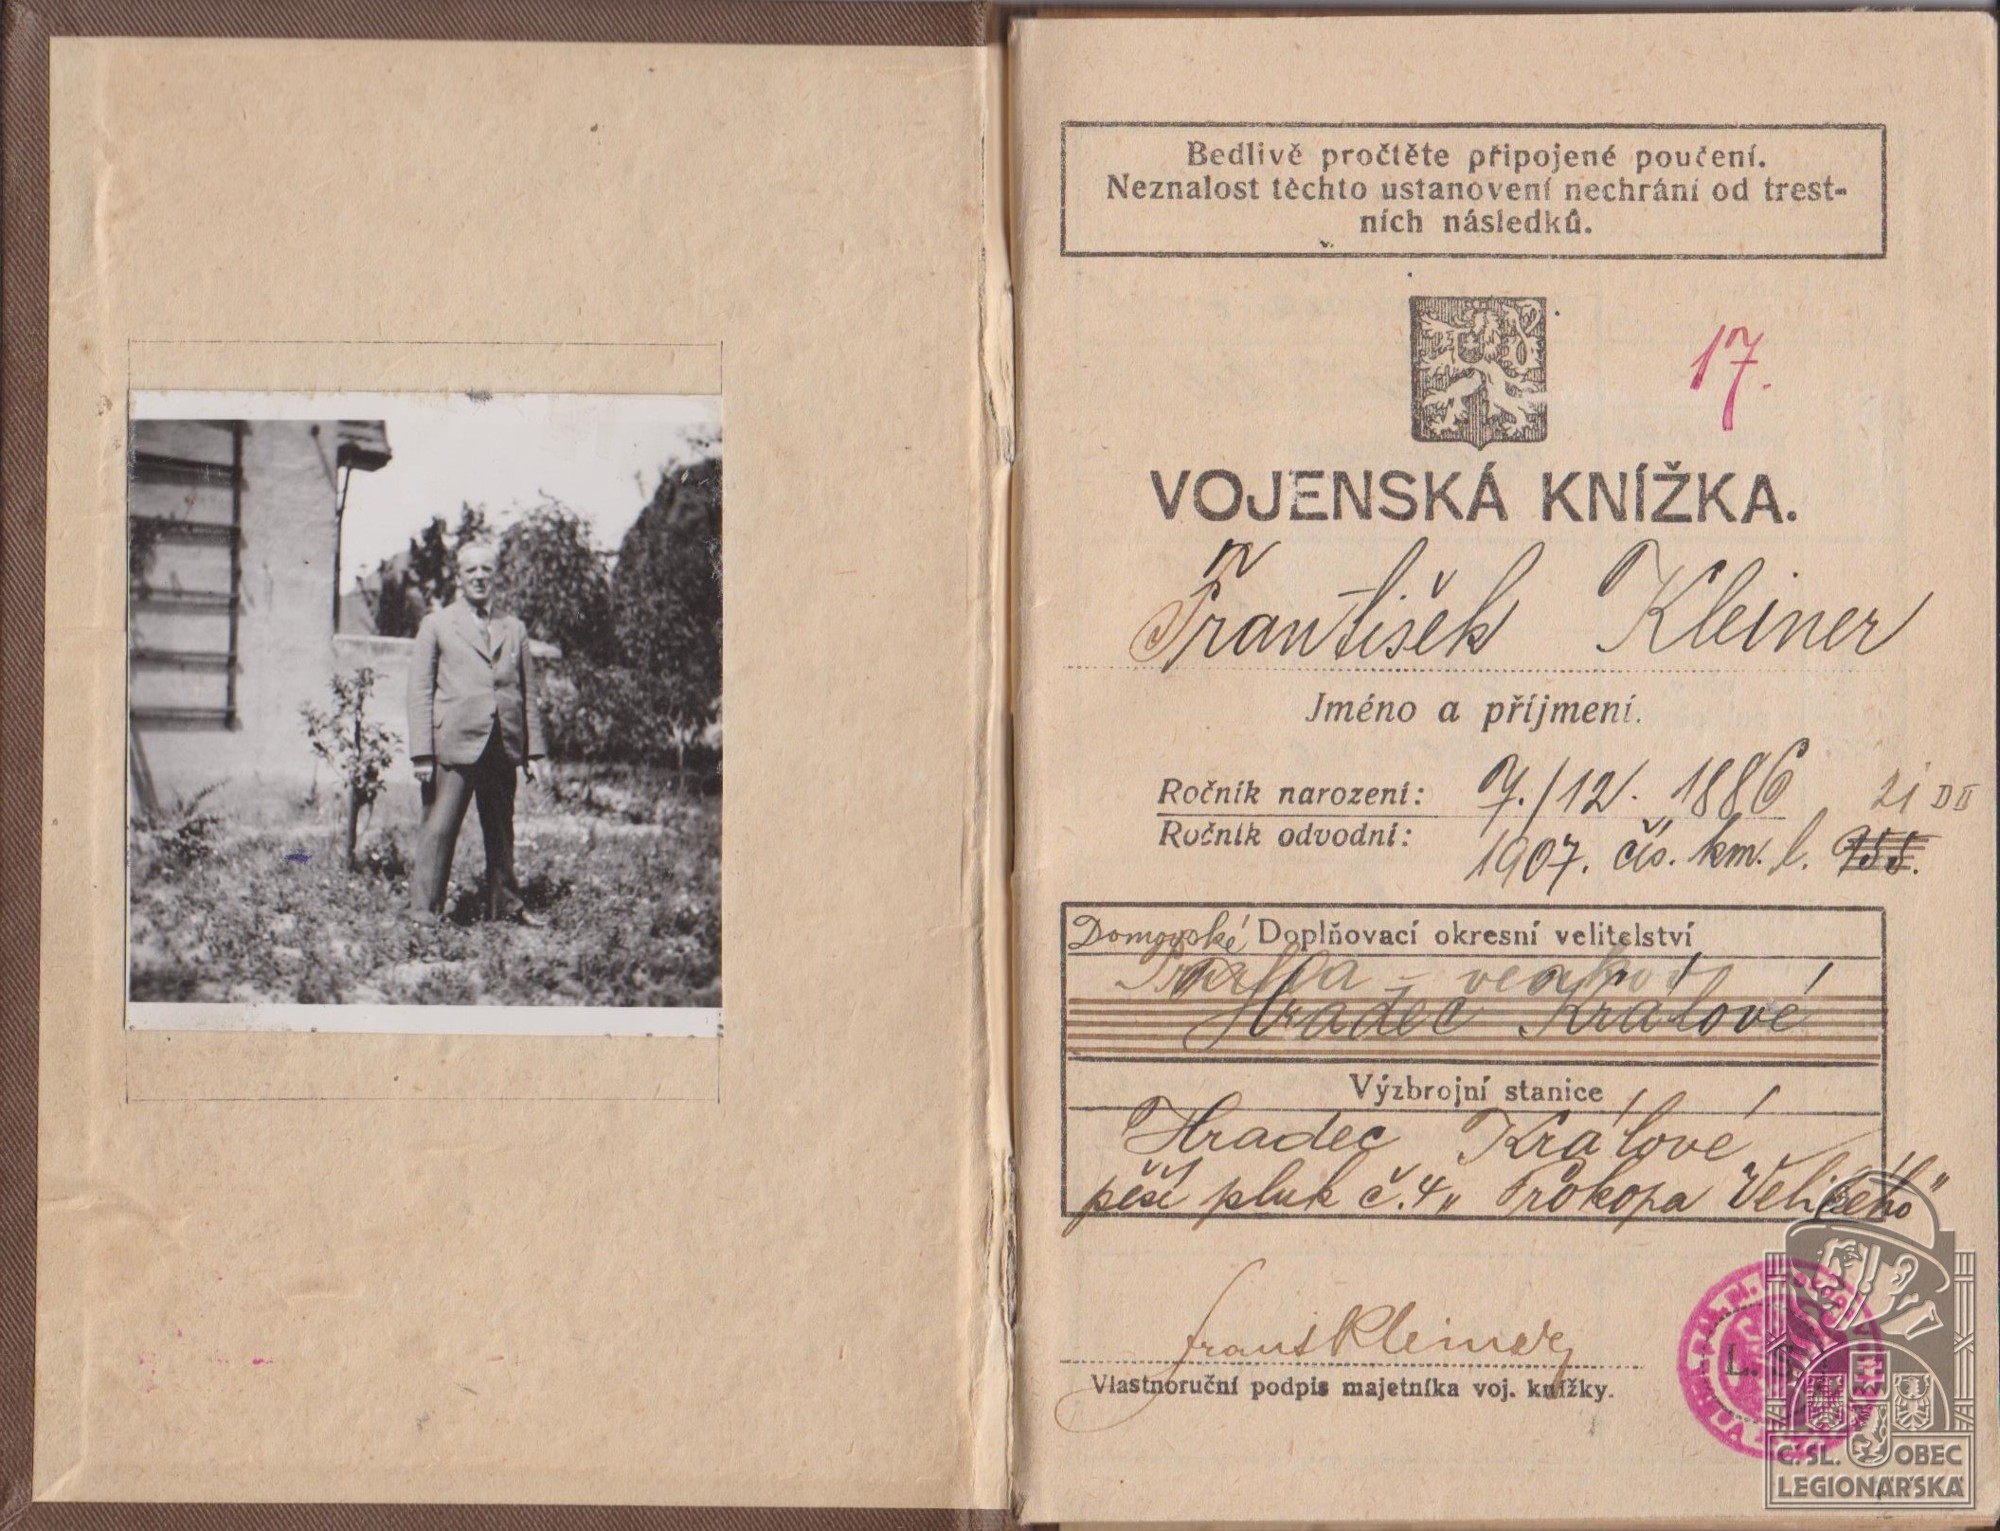 Bedlivě pročtěte připojené poučení.
Neznalost těchto ustanovení nechrání od trest-
ních následků.
17.
VOJENSKÁ KNÍŽKA.
František Kleiner
Jméno a příjmení.
Ročník narození: 7./12. 1886
Ročník odvodní: 1907. čís. km. l.
Domovské Doplňovací okresní velitelství
Praha - venkov
Hradec Králové
Výzbrojní stanice
Hradec Králové
pěší pluk č. 4 „Prokopa Velikého"
Vlastnoruční podpis majetníka voj. knížky.
L. S.
Č. SL. OBEC
LEGIONÁŘSKÁ